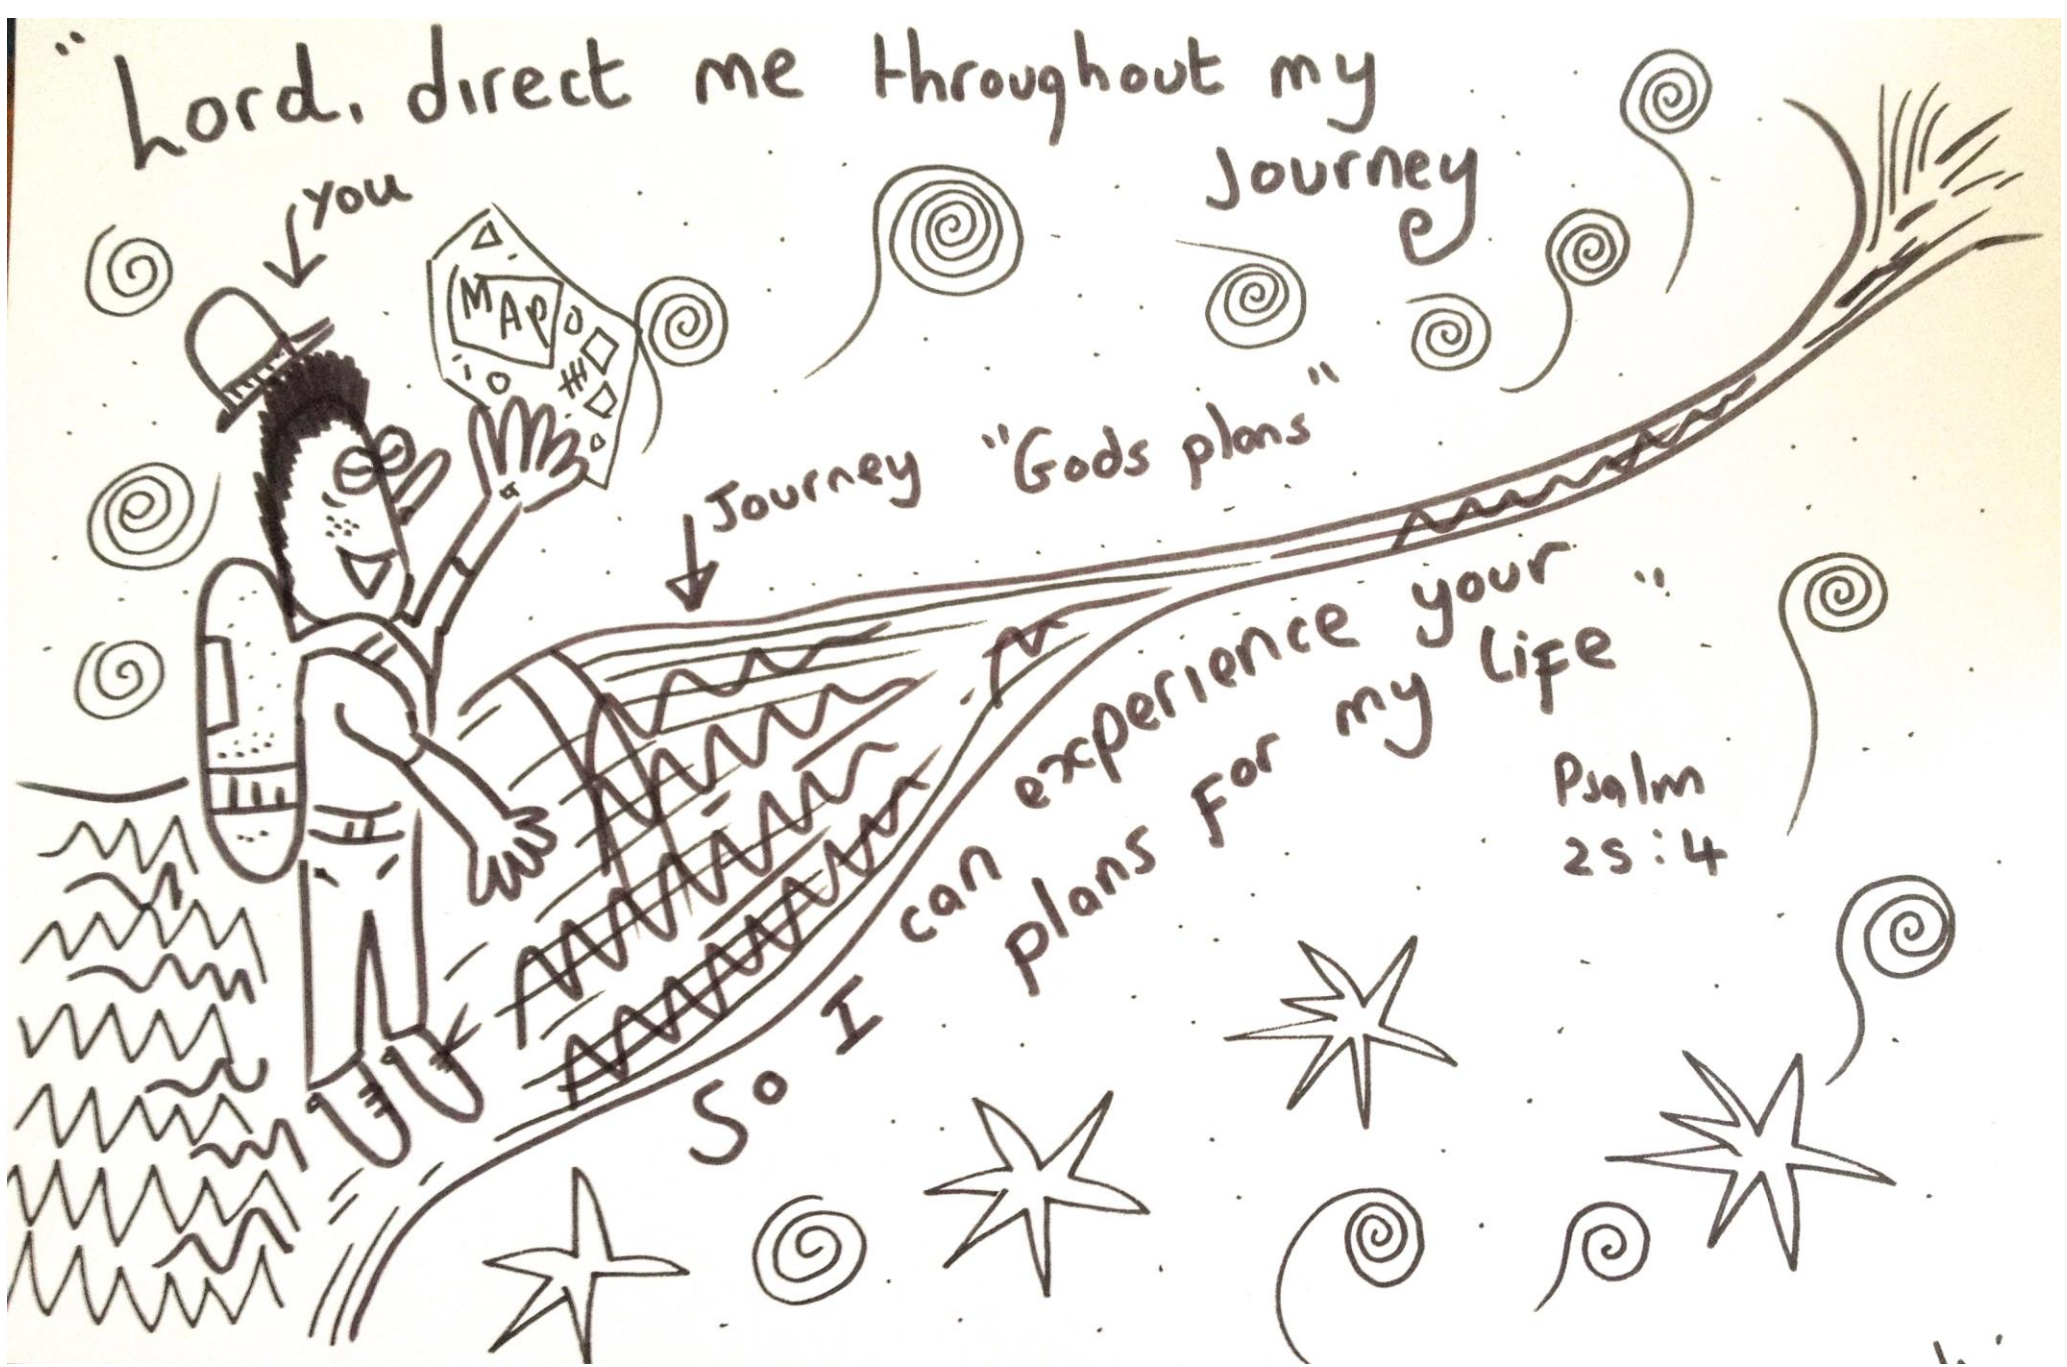 "Lord, direct me throughout my
Journey
You
MAP
Journey "Gods plans"
So I can experience your
plans for my life"
Psalm
25:4